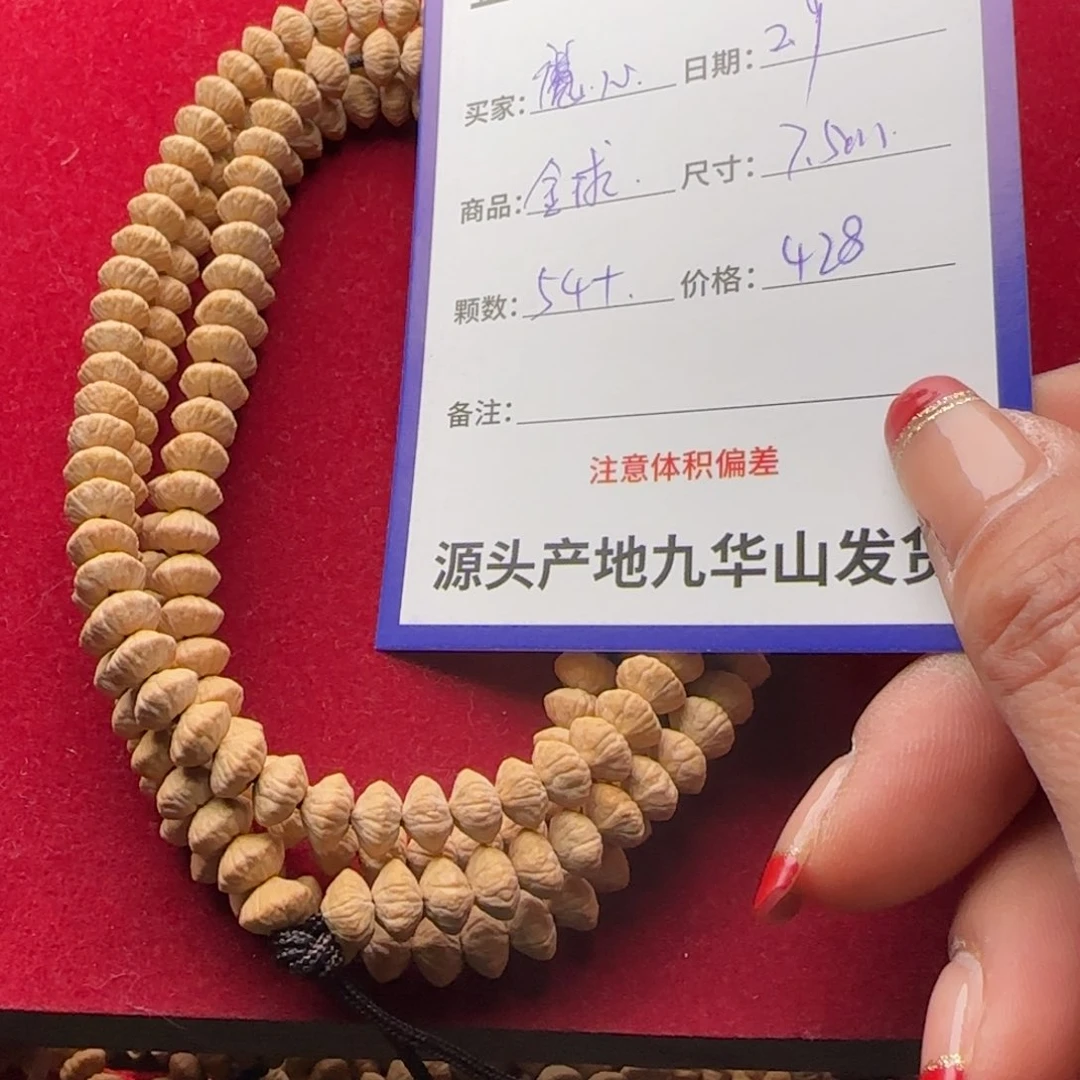 买家: 日期: 29
商品: 金球. 尺寸: 7.5cm.
颗数: 54+. 价格: 428
备注:
注意体积偏差
源头产地九华山发货